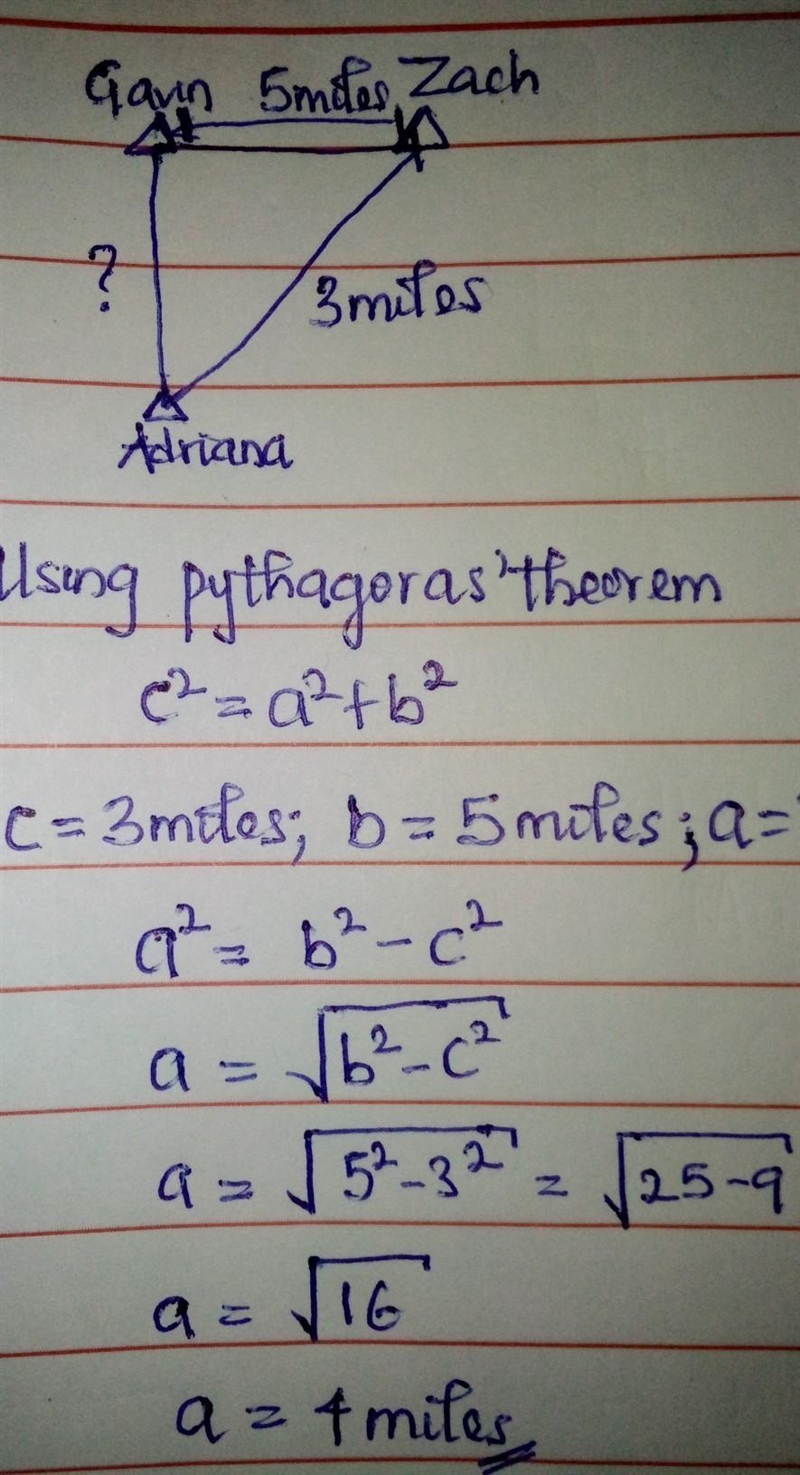 Gavin 5miles Zach
?
3miles
Adriana
Using pythagoras' theorem
c² = a² + b²
c = 3miles; b = 5miles; a = ?
a² = b² - c²
a = √b² - c²
a = √5² - 3² = √25 - 9
a = √16
a = 4miles